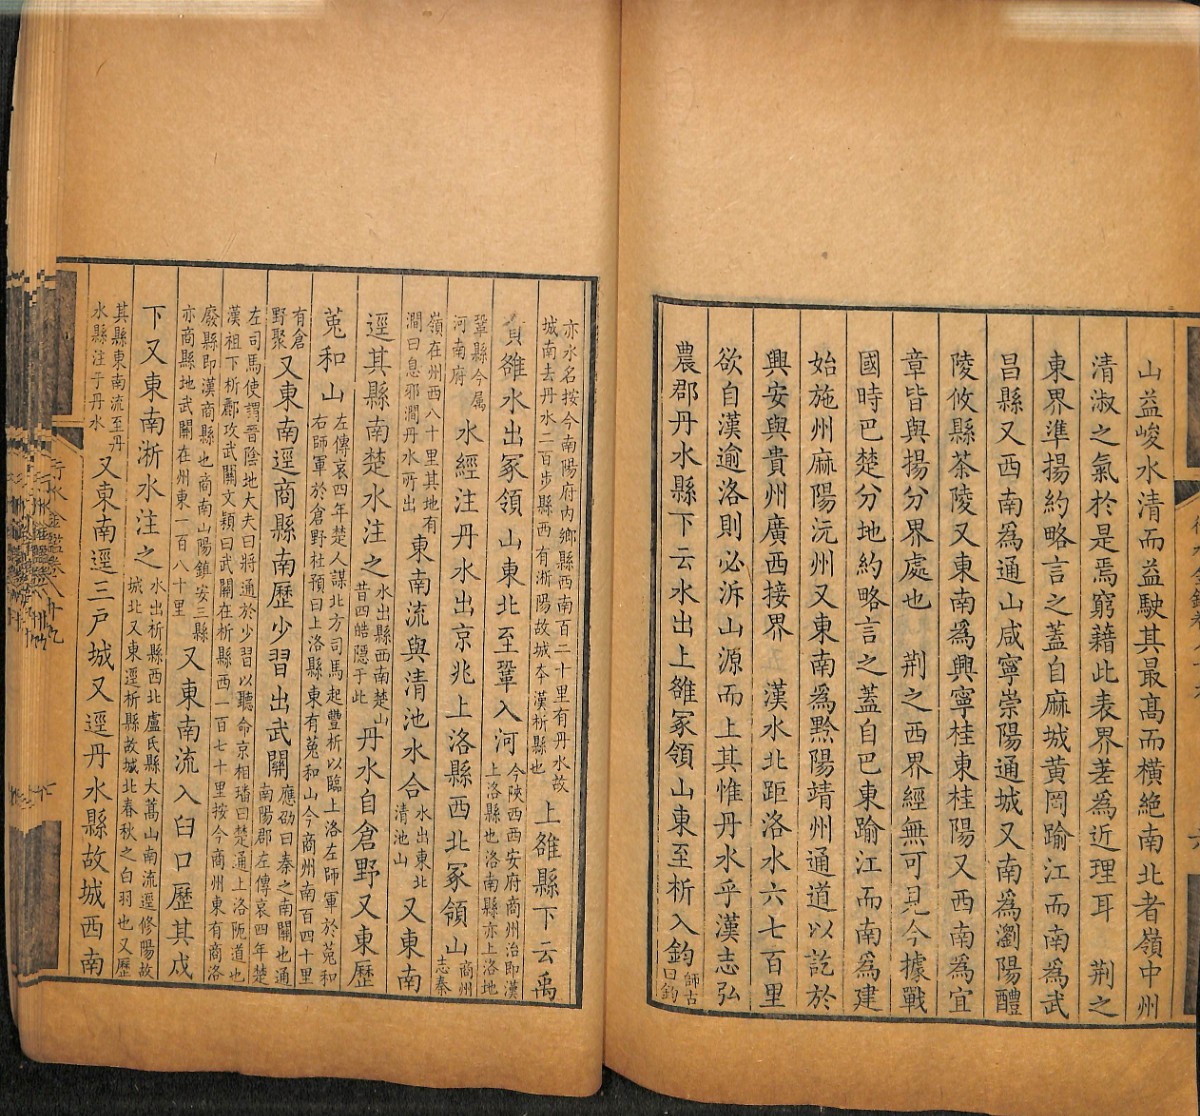 山益峻水清而益駛其最高而橫絶南北者嶺中州
清淑之氣於是焉窮藉此表界差為近理耳　荆之
東界準揚約略言之蓋自麻城黄岡踰江而南為武
昌縣又西南為通山咸寧崇陽通城又南為瀏陽醴
陵攸縣茶陵又東南為興寧桂東桂陽又西南為宜
章皆與揚分界處也　荆之西界經無可見今據戰
國時巴楚分地約略言之蓋自巴東踰江而南為建
始施州麻陽沅州又東南為黔陽靖州通道以訖於
興安與貴州廣西接界　漢水北距洛水六七百里
欲自漢逾洛則必泝山源而上其惟丹水乎漢志弘
農郡丹水縣下云水出上雒冢領山東至析入鈞師古曰鈞
亦水名按今南陽府内鄉縣西南百二十里有丹水故城南去丹水二百步縣西有淅陽故城本漢析縣也上雒縣下云禹
貢雒水出冢領山東北至鞏入河今陜西西安府商州治即漢上洛縣也洛南縣亦上洛地
鞏縣今屬河南府水經注丹水出京兆上洛縣西北冢領山商州志秦
嶺在州西八十里其地有澗曰息邪澗丹水所出東南流與清池水合水出東北清池山又東南
逕其縣南楚水注之水出縣西南楚山昔四皓隱于此丹水自倉野又東歷
菟和山左傳哀四年楚人謀北方司馬起豐析以臨上洛左師軍於菟和右師軍於倉野杜預曰上洛縣東有菟和山今商州南百四十里
有倉野聚又東南逕商縣南歷少習出武關應劭曰秦之南關也通南陽郡左傳哀四年楚
左司馬使謂晉陰地大夫曰將通於少習以聽命京相璠曰楚通上洛阨道也漢祖下析酈攻武關文穎曰武關在析縣西一百七十里按今商州東有商洛
廢縣即漢商縣也商南山陽鎮安三縣亦商縣地武關在州東一百八十里又東南流入臼口歷其戍
下又東南淅水注之水出析縣西北盧氏縣大蒿山南流逕修陽故城北又東逕析縣故城北春秋之白羽也又歷
其縣東南流至丹水縣注于丹水又東南逕三户城又逕丹水縣故城西南
行水金鑑卷八十九